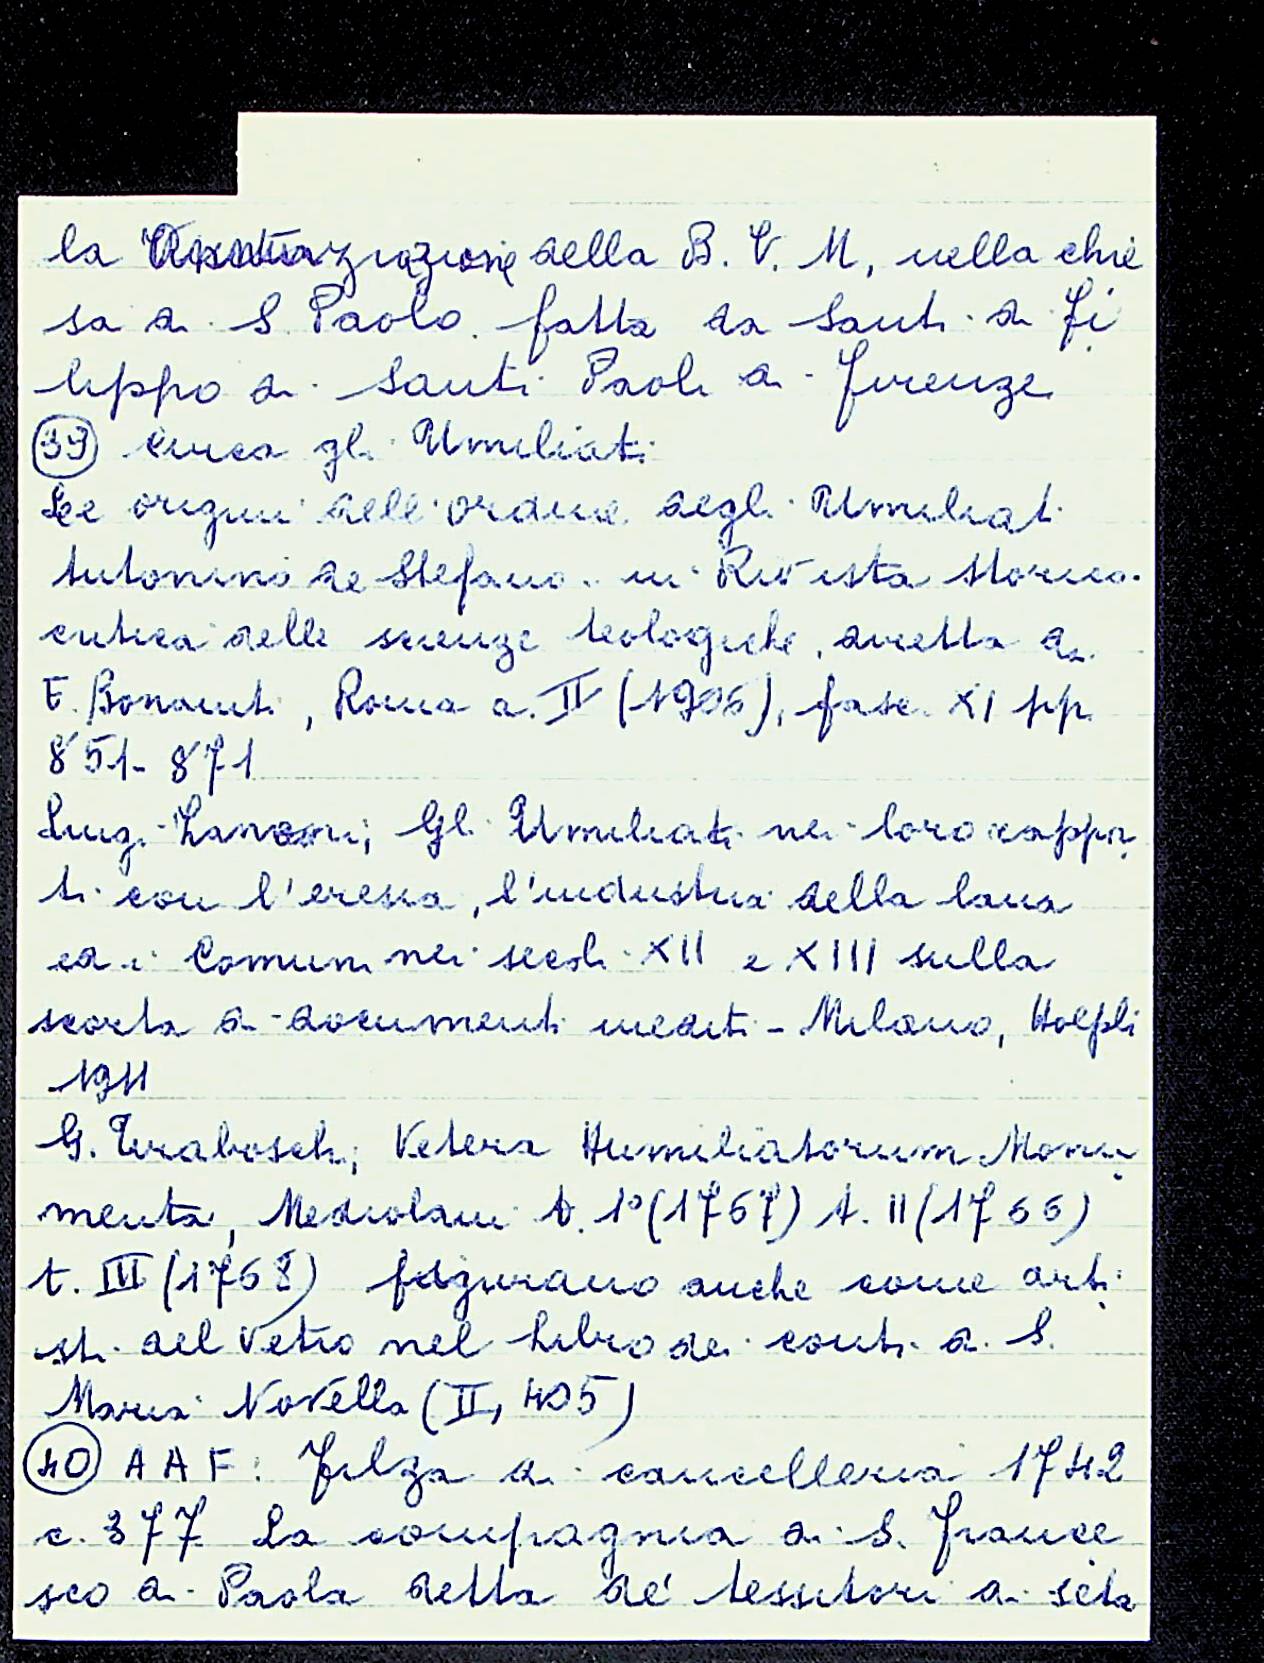 la Annunziazione della B. V. M, nella chie
sa di S. Paolo. fatta da Santi di Fi
lippo di Santi Paoli di Firenze
39 circa gli Umiliati
Le origini dell'ordine degli Umiliati
Antonino de Stefano. in Rivista storico-
critica delle scienze teologiche, diretta da
E. Bonaiuti, Roma a. II (1906), fasc. XI pp
851-871
Luigi Zanoni; Gli Umiliati nei loro rappor
ti con l'eresia, l'industria della lana
ed i Comuni nei secoli XII e XIII sulla
scorta di documenti inediti - Milano, Hoepli
1911
G. Tiraboschi; Vetera Humiliatorum Monu
menta, Mediolani t. 1° (1767) t. II (1766)
t. III (1768) figurano anche come arti
sti del vetro nel libro dei conti di S.
Maria Novella (II, 405)
40 A A F: Filza di cancelleria 1742
c. 377 La compagnia di S. France
sco di Paola detta de' tessitori di seta